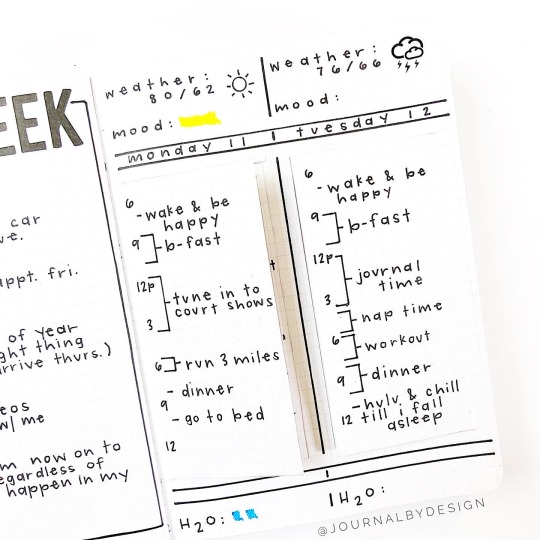 EEK
car
ve.
appt. fri.
of year
ght thing
arrive thurs.)
eos
w/ me
m now on to
egardless of
happen in my
weather:
80/62
mood:
weather:
76/66
mood:
monday 11
tuesday 12
6
-wake & be
happy
9
b-fast
12p
tune in to
court shows
3
6
run 3 miles
- dinner
9
- go to bed
12
6
-wake & be
happy
9
b-fast
12p
journal
time
3
nap time
6
workout
9
dinner
-hulu & chill
12 till i fall
asleep
H2O:
H2O:
@JOURNALBYDESIGN